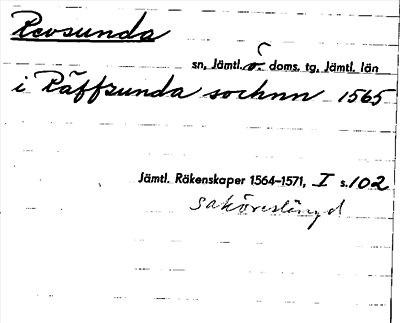 Revsunda
sn, Jämtl. ö. doms. tg, Jämtl. län
i Räffsunda sochnn 1565
Jämtl. Räkenskaper 1564–1571, I s. 102
saköreslängd